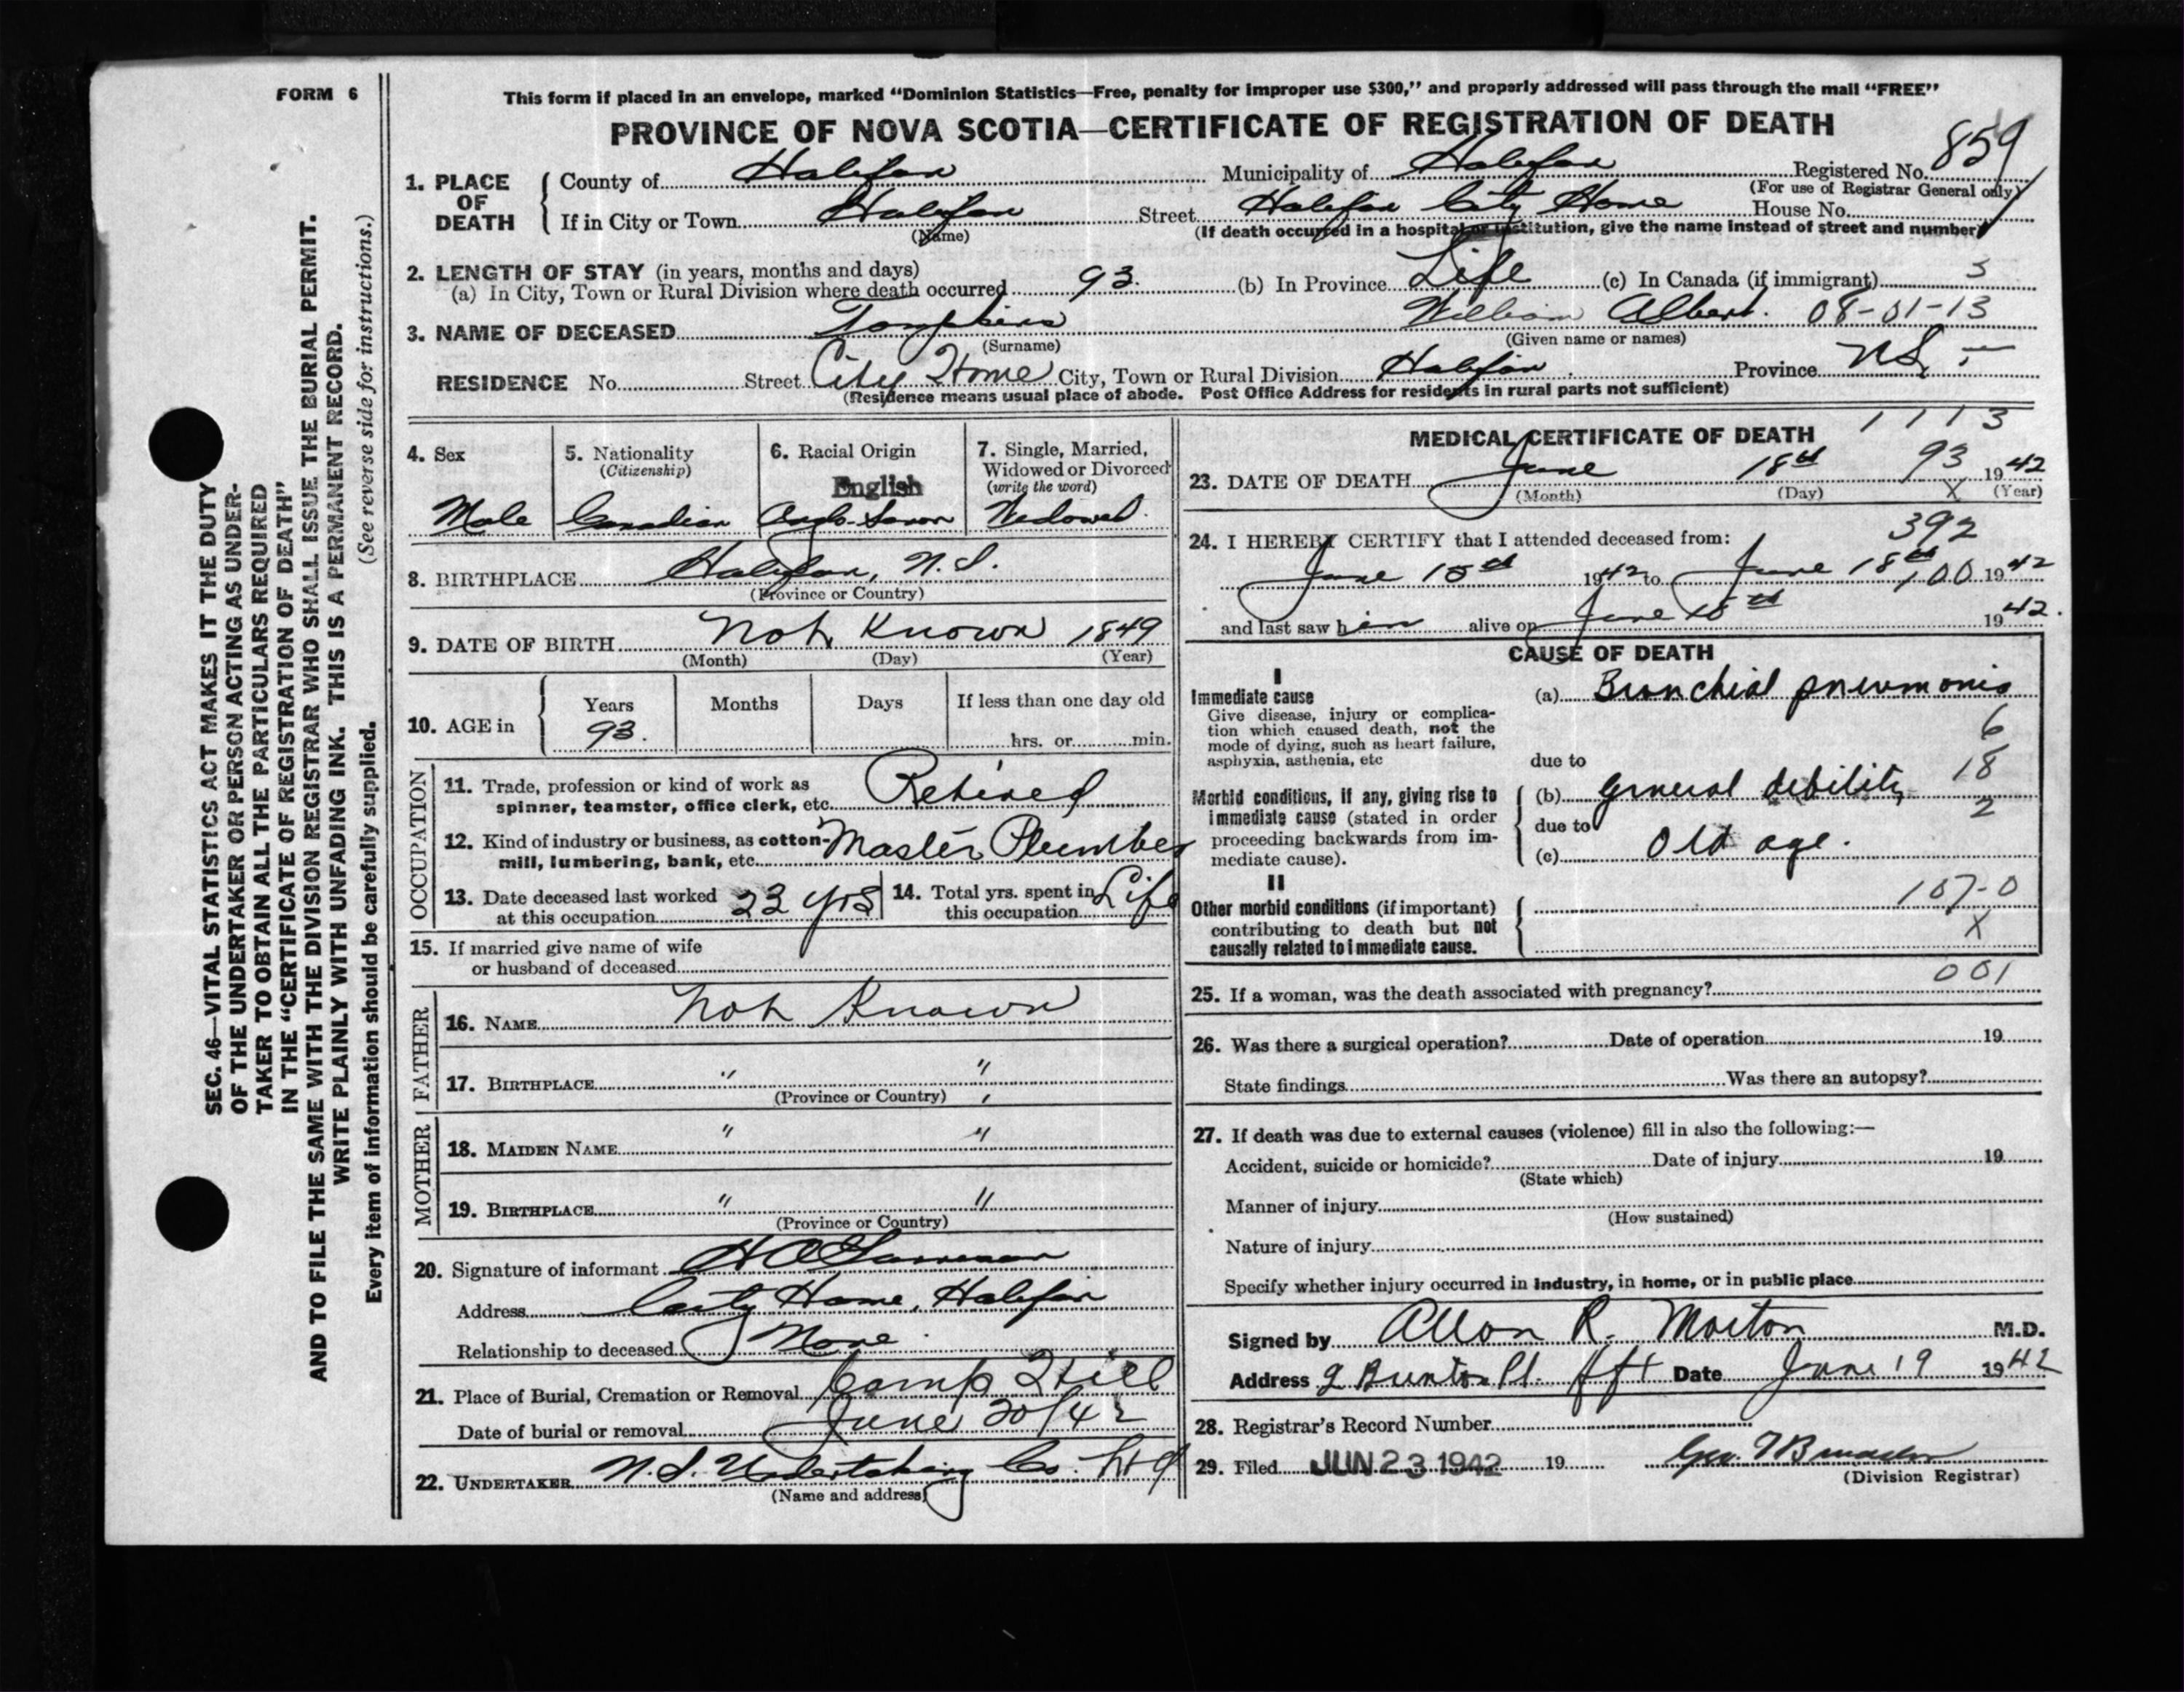 FORM 6
This form if placed in an envelope, marked “Dominion Statistics—Free, penalty for improper use $300,” and properly addressed will pass through the mail “FREE”
PROVINCE OF NOVA SCOTIA—CERTIFICATE OF REGISTRATION OF DEATH
859
1. PLACE OF DEATH
County of Halifax Municipality of Halifax Registered No.
(For use of Registrar General only)
If in City or Town Halifax Street Halifax City Home House No.
(Name) (If death occurred in a hospital or institution, give the name instead of street and number)
2. LENGTH OF STAY (in years, months and days)
(a) In City, Town or Rural Division where death occurred 93. (b) In Province Life (c) In Canada (if immigrant) 3
3. NAME OF DECEASED Tompkins William Albert. 08-01-13
(Surname) (Given name or names)
RESIDENCE No. Street City Home City, Town or Rural Division Halifax. Province N.S.
(Residence means usual place of abode. Post Office Address for residents in rural parts not sufficient)
SEC. 46—VITAL STATISTICS ACT MAKES IT THE DUTY
OF THE UNDERTAKER OR PERSON ACTING AS UNDER-
TAKER TO OBTAIN ALL THE PARTICULARS REQUIRED
IN THE “CERTIFICATE OF REGISTRATION OF DEATH”
AND TO FILE THE SAME WITH THE DIVISION REGISTRAR WHO SHALL ISSUE THE BURIAL PERMIT.
WRITE PLAINLY WITH UNFADING INK. THIS IS A PERMANENT RECORD.
Every item of information should be carefully supplied. (See reverse side for instructions.)
4. Sex
Male
5. Nationality
(Citizenship)
Canadian
6. Racial Origin
English
Anglo-Saxon
7. Single, Married,
Widowed or Divorced
(write the word)
Widowed.
8. BIRTHPLACE Halifax, N.S.
(Province or Country)
9. DATE OF BIRTH Not Known 1849
(Month) (Day) (Year)
10. AGE in
Years Months Days If less than one day old
93. hrs. or min.
OCCUPATION
11. Trade, profession or kind of work as
spinner, teamster, office clerk, etc. Retired
12. Kind of industry or business, as cotton-
mill, lumbering, bank, etc. Master Plumber
13. Date deceased last worked
at this occupation 23 yrs
14. Total yrs. spent in
this occupation Life
15. If married give name of wife
or husband of deceased
FATHER
16. NAME Not Known
17. BIRTHPLACE " "
(Province or Country)
MOTHER
18. MAIDEN NAME " "
19. BIRTHPLACE " "
(Province or Country)
20. Signature of informant
Address City Home, Halifax
Relationship to deceased None.
21. Place of Burial, Cremation or Removal Camp Hill
Date of burial or removal June 20/42
22. UNDERTAKER N.S. Undertaking Co. Ltd
(Name and address)
1113
MEDICAL CERTIFICATE OF DEATH
93
23. DATE OF DEATH June 18th 1942
(Month) (Day) X (Year)
392
24. I HEREBY CERTIFY that I attended deceased from:
June 15th 1942 to June 18th 1942
100
and last saw him alive on June 18th 1942.
CAUSE OF DEATH
I
Immediate cause
Give disease, injury or complica-
tion which caused death, not the
mode of dying, such as heart failure,
asphyxia, asthenia, etc
(a) Bronchial pneumonia
6
18
2
due to
Morbid conditions, if any, giving rise to
immediate cause (stated in order
proceeding backwards from im-
mediate cause).
(b) general debility
due to
(c) Old age.
II
Other morbid conditions (if important)
contributing to death but not
causally related to immediate cause.
107-0
X
001
25. If a woman, was the death associated with pregnancy?
26. Was there a surgical operation? Date of operation 19
State findings Was there an autopsy?
27. If death was due to external causes (violence) fill in also the following:—
Accident, suicide or homicide? Date of injury 19
(State which)
Manner of injury
(How sustained)
Nature of injury
Specify whether injury occurred in industry, in home, or in public place
Signed by Allon R. Morton M.D.
Address Date June 19 1942
28. Registrar’s Record Number
29. Filed JUN 23 1942 19
(Division Registrar)